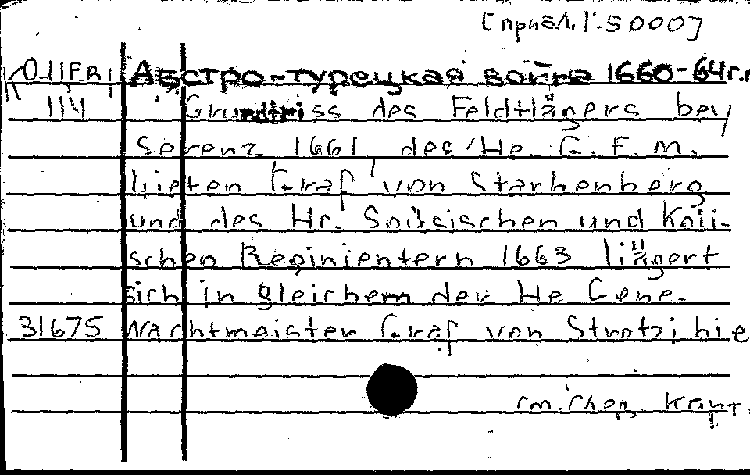 [прибл. 1:5000]
Австро-турецкая война 1660-64г.г
114 Grundtriss des Feldtlägers bey
Serenz 1661 des He G. F. M.
lieten Graf von Starhenberg
und des Hr. Soitsischen und Kaii-
schen Reginientern 1663 lägert
sich in gleichem der He Gene-
31675 Nachtmeister Graf von Strotzi hie
см. след. карт.